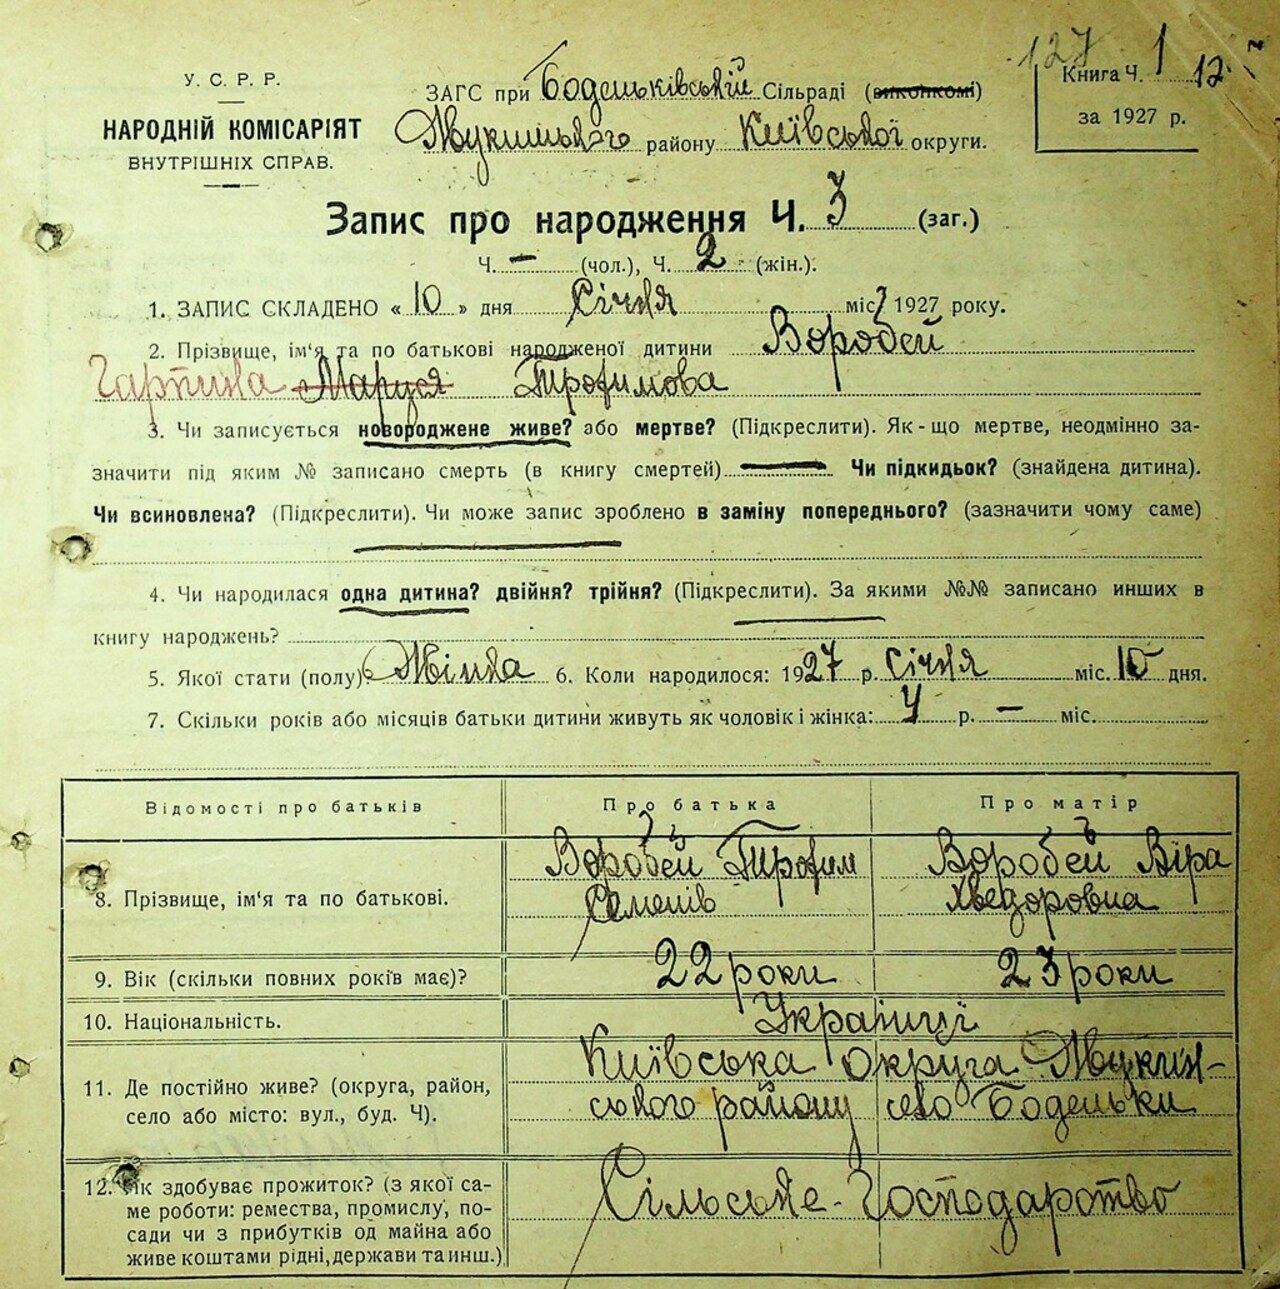 127
У. С. Р. Р.
НАРОДНІЙ КОМІСАРІЯТ
ВНУТРІШНІХ СПРАВ.
ЗАГС при Боденьківській Сільраді (виконкомі)
району Київської округи.
Книга Ч. 1 12
за 1927 р.
Запис про народження Ч. 3 (заг.)
Ч. – (чол.), Ч. 2 (жін.).
1. ЗАПИС СКЛАДЕНО « 10 » дня Січня міс. 1927 року.
2. Прізвище, ім'я та по батькові народженої дитини Воробей
Гарпина Маруся Трофимова
3. Чи записується новороджене живе? або мертве? (Підкреслити). Як-що мертве, неодмінно за-
значити під яким № записано смерть (в книгу смертей) — Чи підкидьок? (знайдена дитина).
Чи всиновлена? (Підкреслити). Чи може запис зроблено в заміну попереднього? (зазначити чому саме)
4. Чи народилася одна дитина? двійня? трійня? (Підкреслити). За якими №№ записано инших в
книгу народжень?
5. Якої стати (полу)? Жінка 6. Коли народилося: 1927 р. Січня міс. 10 дня.
7. Скільки років або місяців батьки дитини живуть як чоловік і жінка: 4 р. – міс.
Відомості про батьків Про батька Про матір
8. Прізвище, ім'я та по батькові. Воробей Трофим Воробей Віра
Семенів Хведоровна
9. Вік (скільки повних років має)? 22 роки 23 роки
10. Національність. Українці
11. Де постійно живе? (округа, район, Київська округа Жукин-
село або місто: вул., буд. Ч). ського району село Боденьки
12. Як здобуває прожиток? (з якої са-
ме роботи: ремества, промислу, по- Сільське-Господарство
сади чи з прибутків од майна або
живе коштами рідні, держави та инш.)